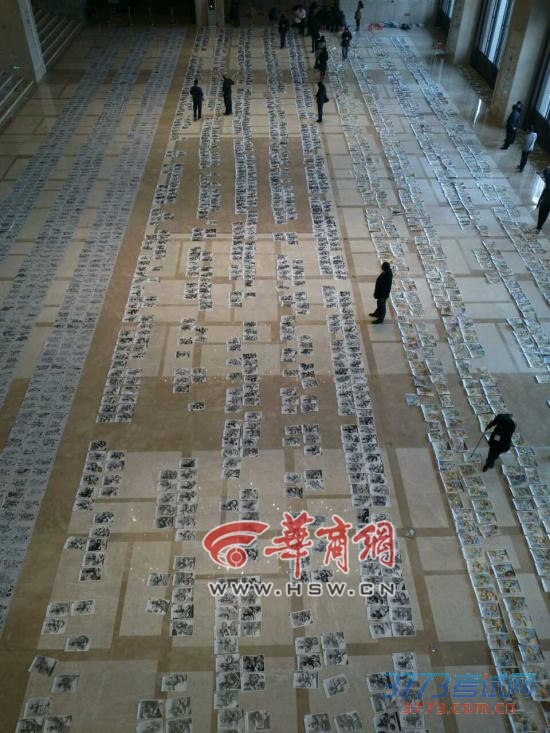 華商網
WWW.HSW.CN
3773考试网
3773.com.cn